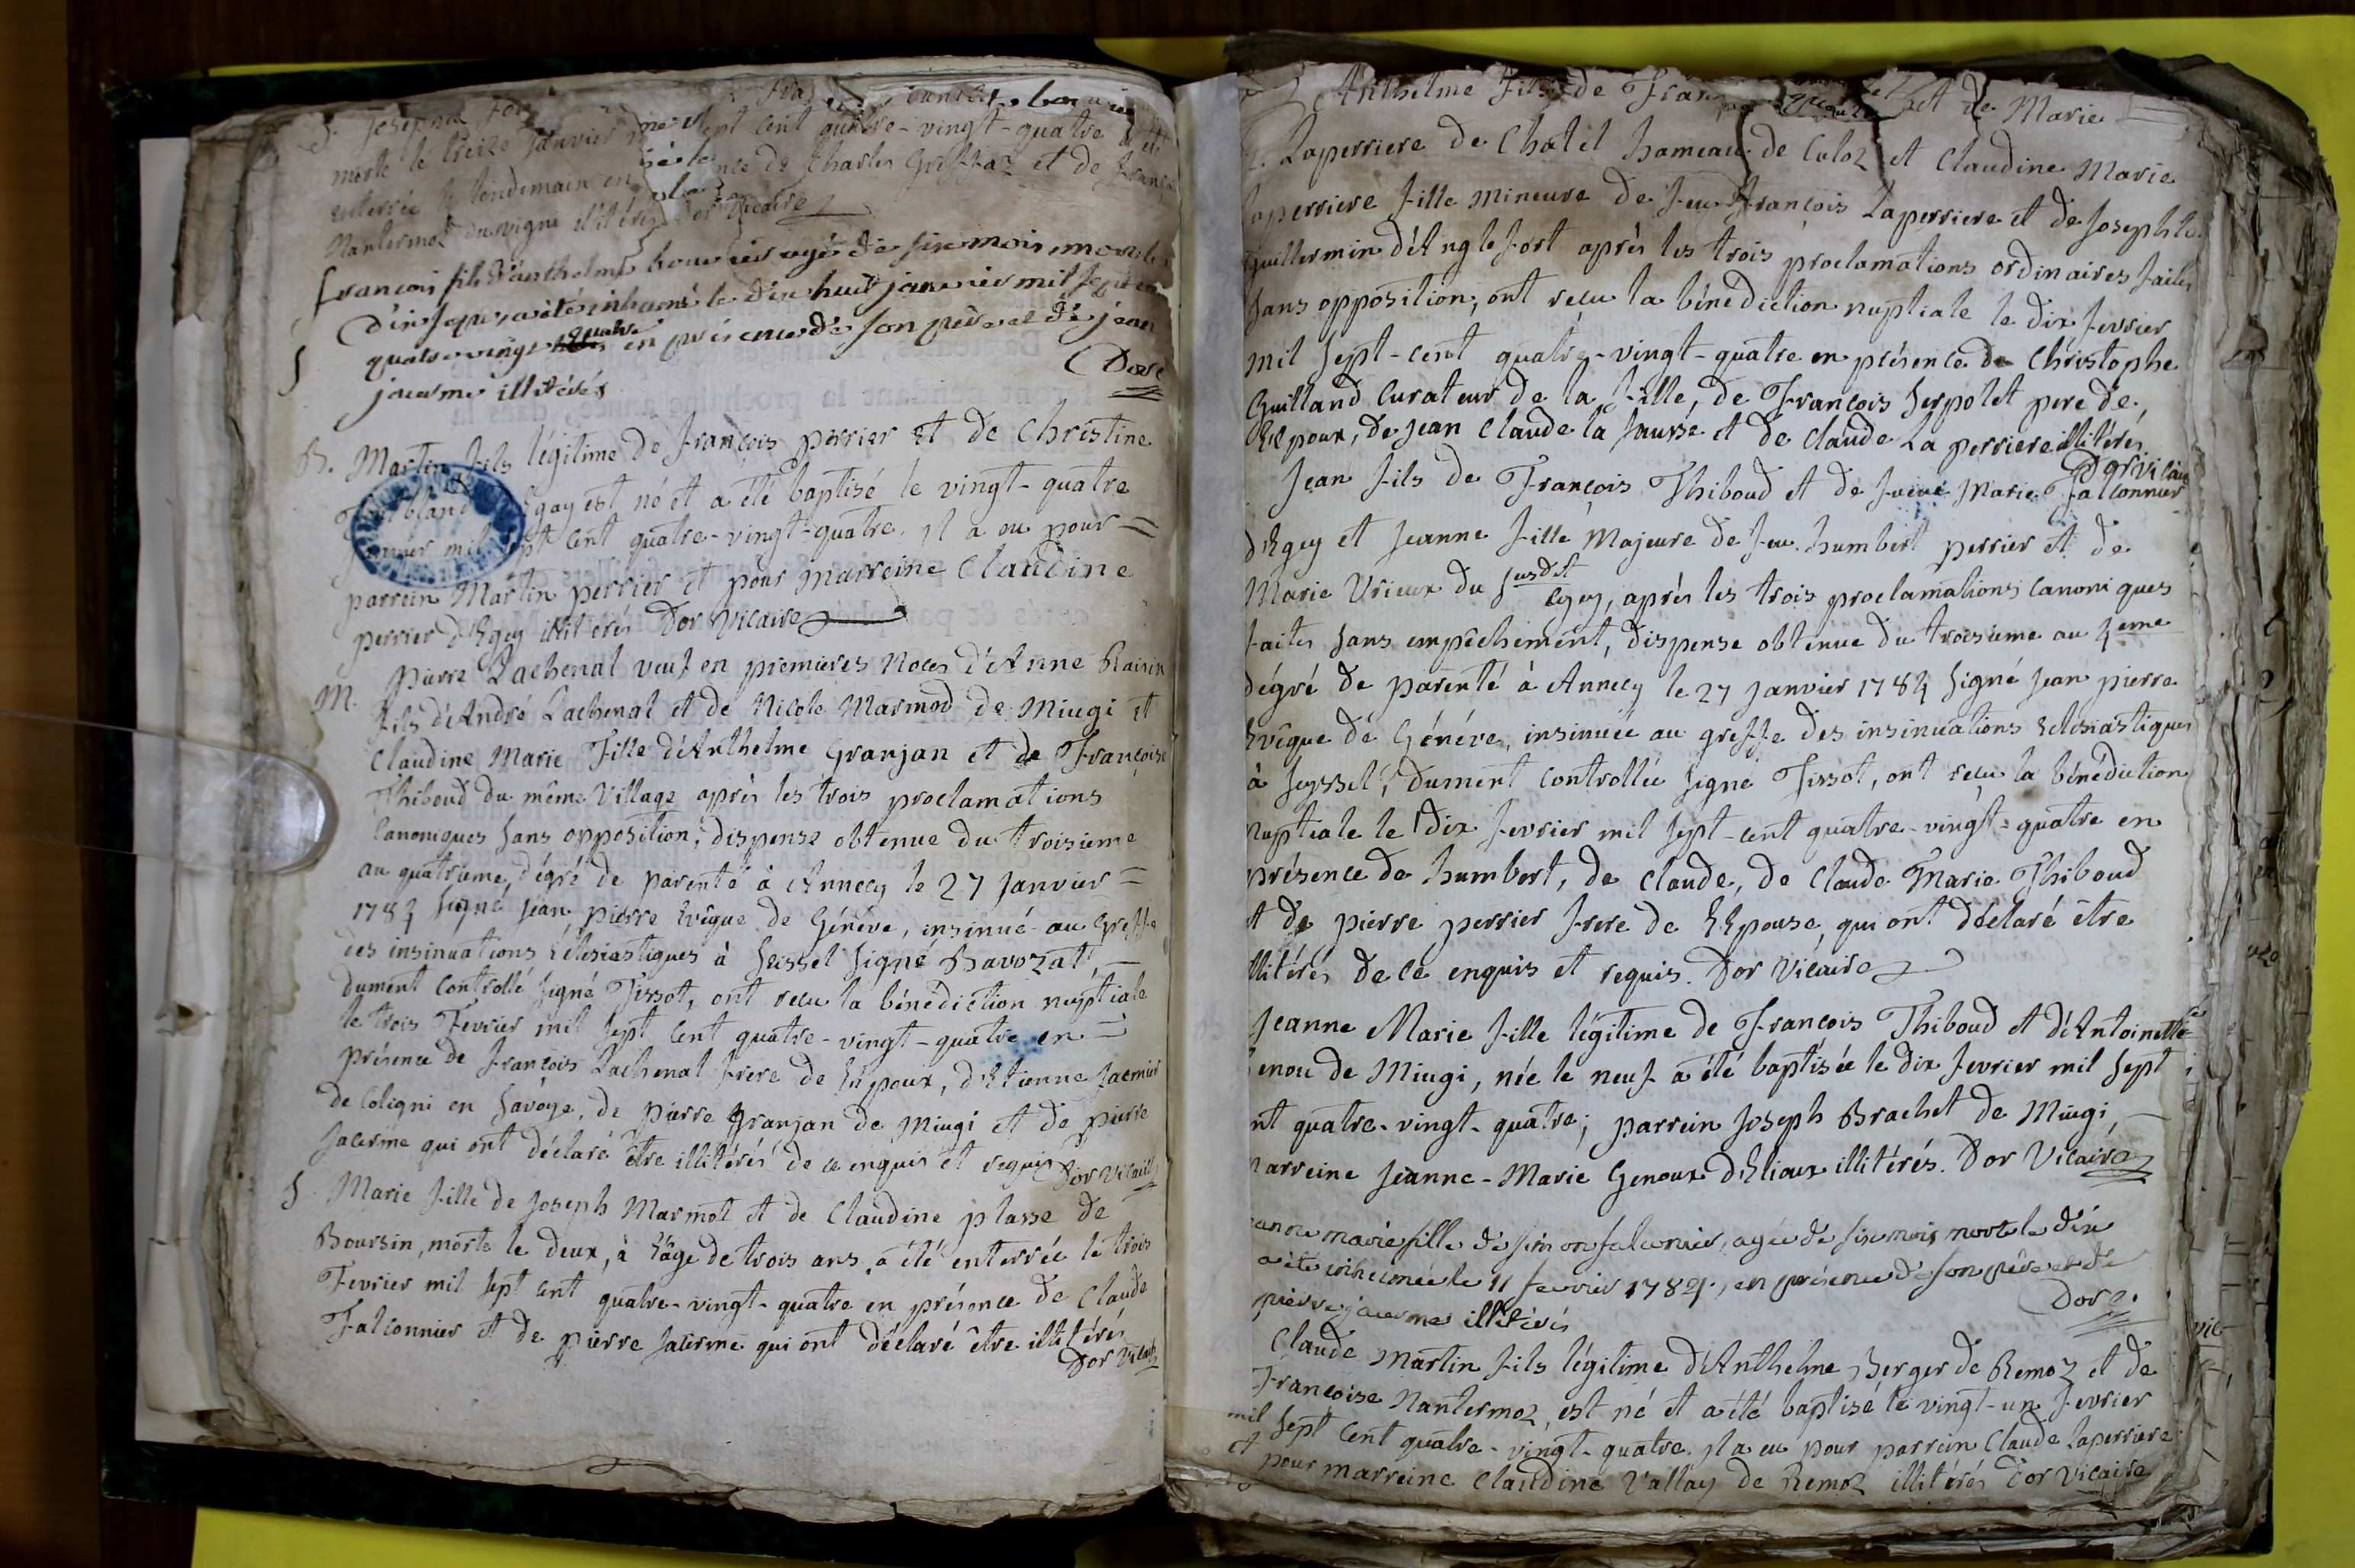 S. Josepha
morte le treize Janvier sept cent quatre-vingt-quatre a été
enterrée le lendemain en de Charles Greffaz et de
Nantermoz du vigne illitérés Dor Vicaire
françois fils d'anthelme bouvier agé de six mois mort le
dix sept, a été inhumé le dix huit janvier mil sept cent
S quatre vingt quatre en présence de son père et de jean
jacerme illitérés Dor
B. Martin fils légitime de françois perrier et de Christine
Egay est né et a été baptisé le vingt-quatre
Janvier mil sept cent quatre-vingt-quatre. Il a eu pour =
parrein Martin perrier et pour marreine Claudine
perrier d'Egey illitérés Dor Vicaire
M. pierre Lachenal veuf en premieres Noces d'Anne Raisin
fils d'André Lachenal et de Nicole Marmod de Miugi et
Claudine Marie Fille d'Anthelme Granjan et de Françoise
Thiboud du même Village après les trois proclamations
Canoniques sans opposition; dispense obtenue du troisieme
au quatrieme dégré de parenté à Annecy le 27 Janvier =
1784 signé jean pierre Evêque de Génève, insinué au Greffe
des insinuations Eclesiastiques à Seissel signé Bavozat, —
dument Controllé signé Tissot, ont reçu la bénédiction nuptiale
le trois Fevrier mil sept cent quatre-vingt-quatre en =
présence de françois Lachenal frere de l'Epoux, d'Etienne Jacmier
de Coligni en Savoye, de pierre Granjan de Miugi et de pierre
Jacerme qui ont déclaré être illitérés de ce enquis et requis Dor Vicaire
S. Marie fille de Joseph Marmot et de Claudine plasse de
Boursin, morte le deux, à l'âge de trois ans, a été enterrée le trois
Fevrier mil sept cent quatre-vingt-quatre en présence de Claude
Falconnier et de pierre Jacerme qui ont déclaré être illitérés
Dor Vicaire
Anthelme Fils de et de Marie
Laperriere de Chatel hameau de Culoz et Claudine Marie
laperriere fille mineure de feu françois Laperriere et de Josephte
Guillermin d'Anglefort après les trois proclamations ordinaires faites
sans opposition; ont reçu la bénédiction nuptiale le dix fevrier
mil sept-cent quatre-vingt-quatre en présence de Christophe
Guilland Curateur de la fille, de François Serpolet pere de
l'Epoux, de jean Claude la fausse et de Claude La perriere illitérés
Dor Vicaire
Jean fils de François Thiboud et de fueue Marie Falconnier
d'Egey et Jeanne fille Majeure de feu humbert perrier et de
Marie Vrieux du susdit Egey, après les trois proclamations Canoniques
faites sans empêchement, dispense obtenue du troisieme au 4eme
dégré de parenté à Annecy le 27 Janvier 1784 signé Jean pierre
Evêque de Génève, insinuée au greffe des insinuations Eclesiastiques
à Seyssel, dument Controllée signé Tissot, ont reçu la bénédiction
nuptiale le dix fevrier mil sept-cent quatre-vingt-quatre en
présence de humbert, de Claude, de Claude Marie Thiboud
et de pierre perrier frere de l'Epouse, qui ont déclaré être
illitérés de ce enquis et requis. Dor Vicaire
Jeanne Marie fille légitime de François Thiboud et d'Antoinette
enou de Miugi, née le neuf a été baptisée le dix fevrier mil sept
nt quatre-vingt-quatre; parrein Joseph Brachet de Miugi, —
arreine Jeanne-Marie Genoux d'Elioux illitérés. Dor Vicaire
anne marie fille de simon falconnier, agée de six mois morte le dix
a été inhumée le 11 fevrier 1784, en présence de son père et de
pierre jacerme illitérés Dor
Claude Martin fils légitime d'Anthelme Berger de Remoz et de
Françoise Nantermoz, est né et a été baptisé le vingt-un fevrier
mil sept Cent quatre-vingt-quatre. Il a eu pour parrein Claude laperriere
et pour marreine Claudine Vallay de Remoz illitérés Dor Vicaire